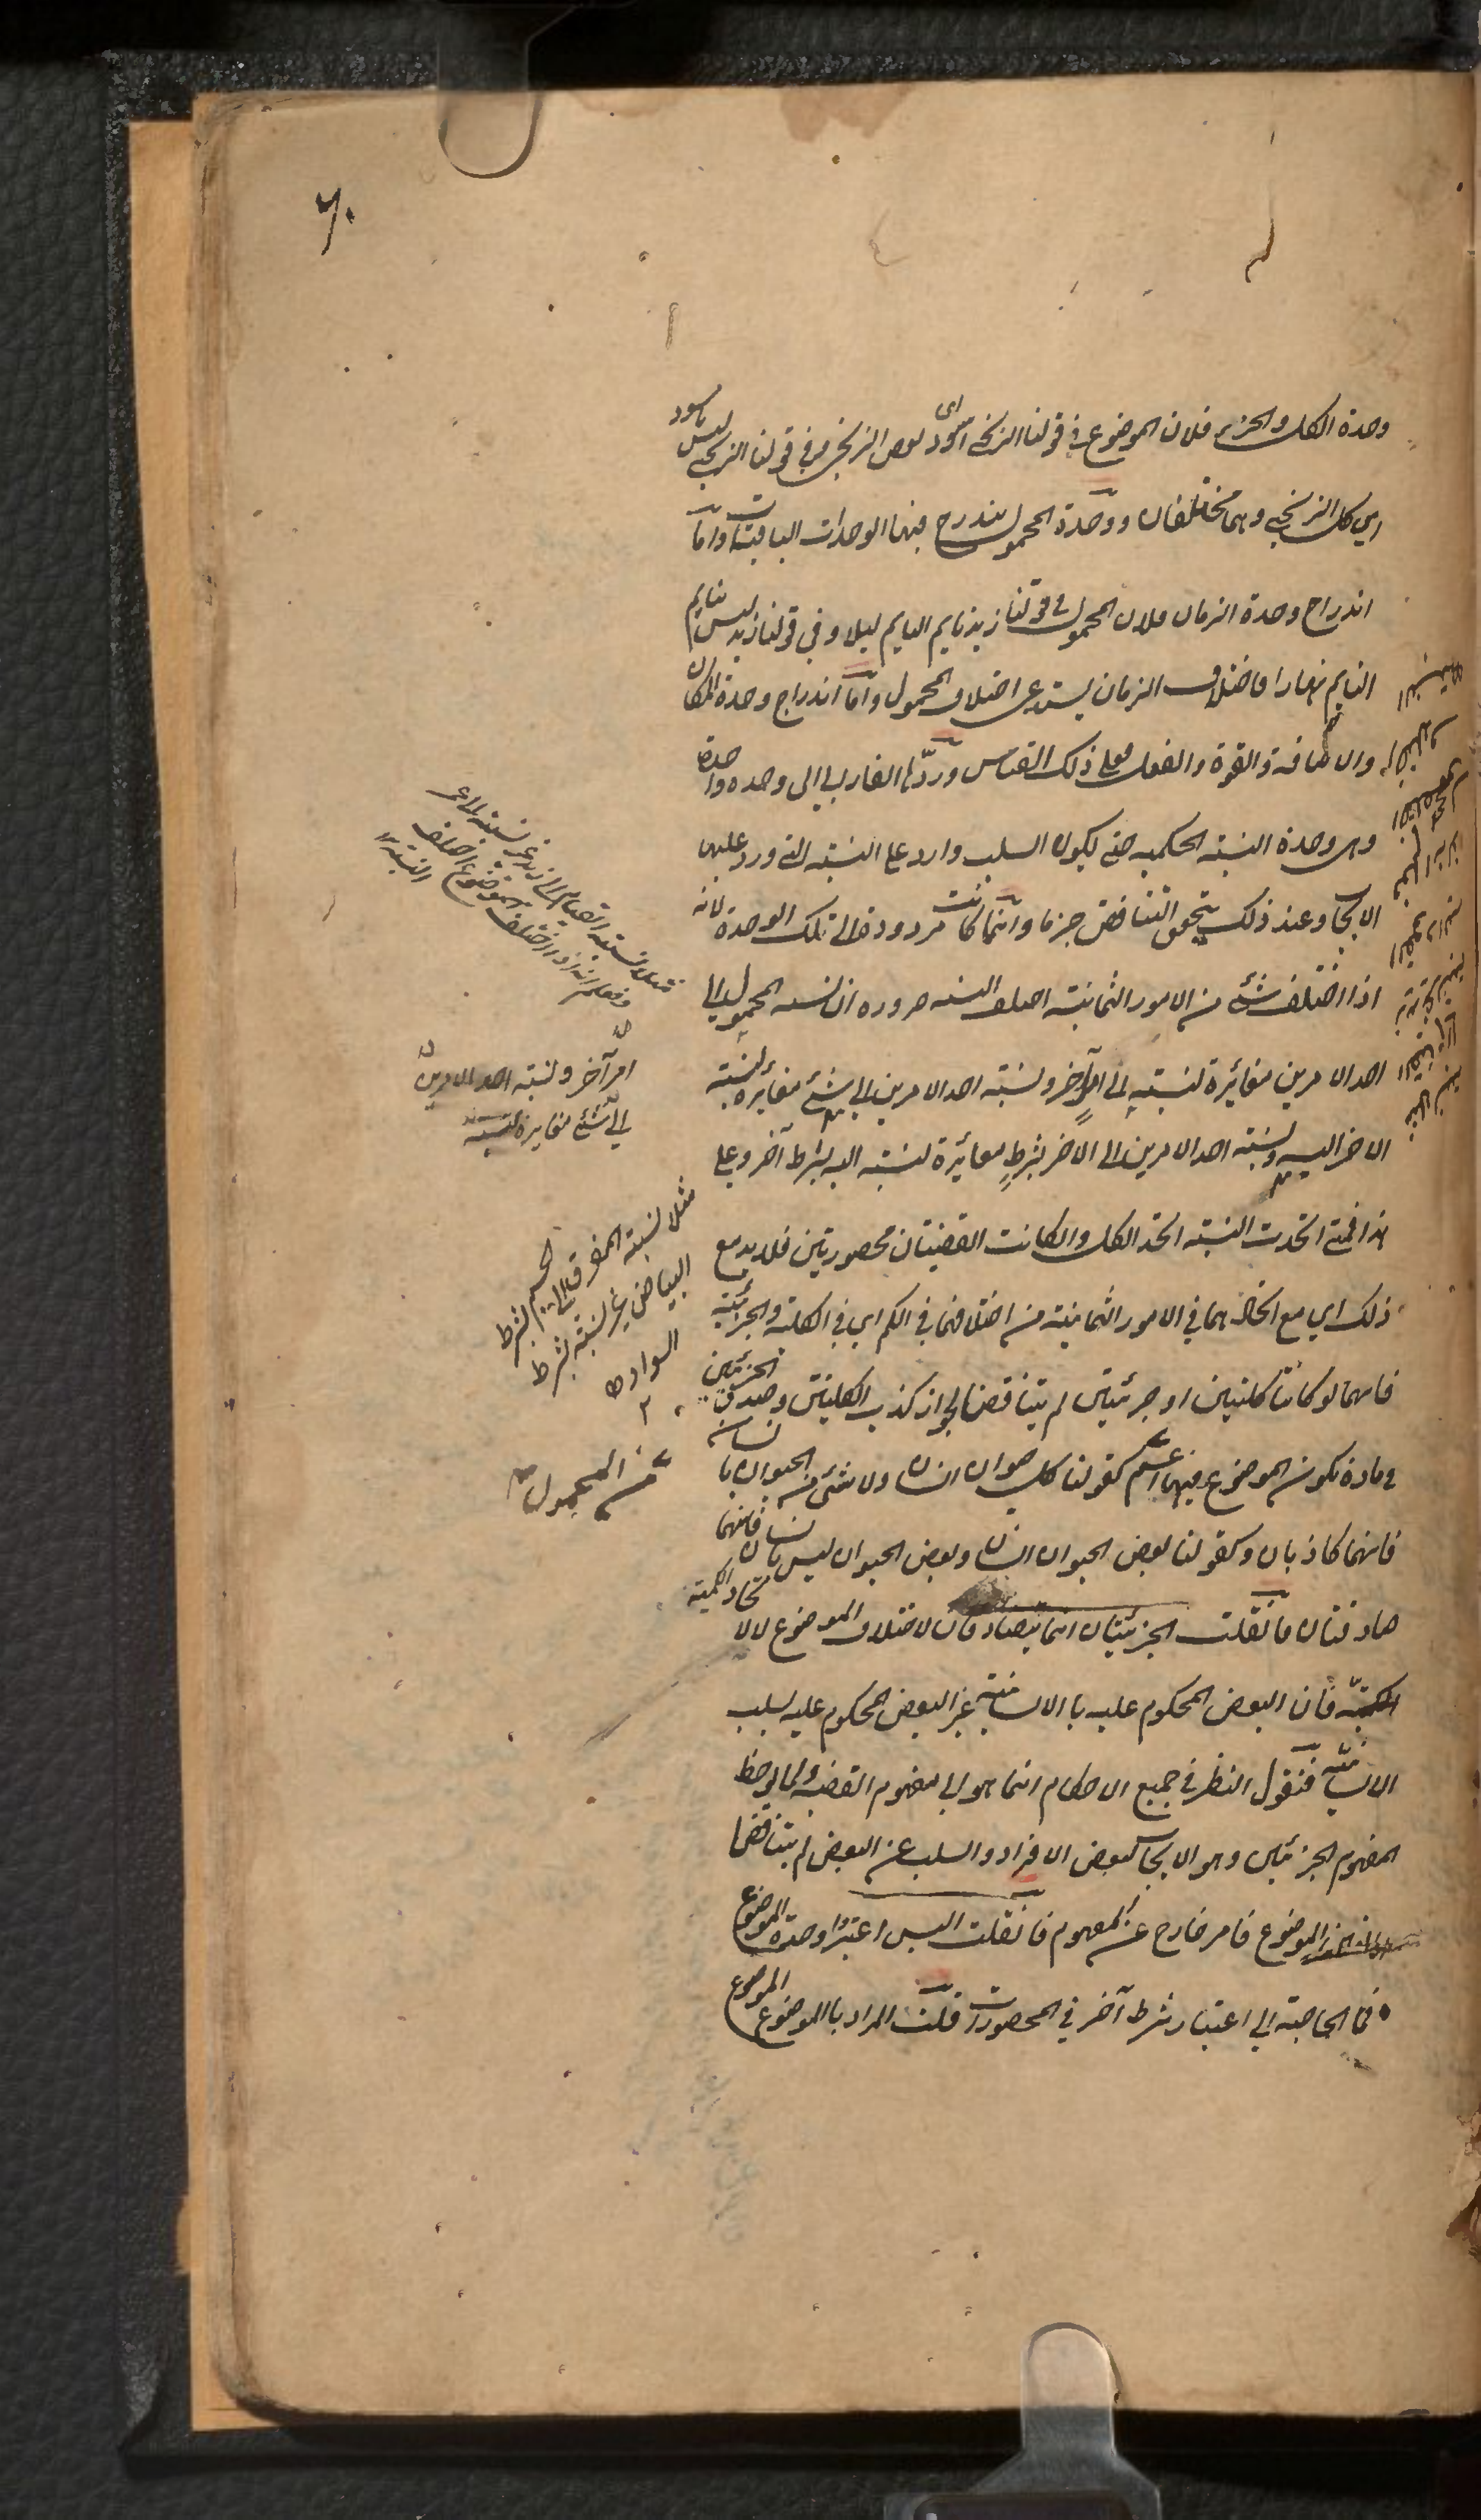 ٦٠
وحدة الكل والجزء فلان الموضوع في قولنا الزنجي اسود اى بعض الزنجي وفي قولنا الزنجي ليس باسود
اي كل الزنجي وهما مختلفان ووحدة المحمول يندرج فيها الوحدات الباقيات واما
اندراج وحدة الزمان فلان المحمول في قولنا زيد نايم النايم ليلا وفي قولنا زيد ليس بنايم
النايم نهارا فاختلاف الزمان يستدعى اختلاف المحمول واما اندراج وحدة المكان
والاضافة والقوة والفعل فعلى ذلك القياس وردّها الفارابي الى وحده واحدة
وهى وحدة النسبة الحكميه حتى يكون السلب واردا على النسبته التى ورد عليها
الايجاب وعند ذلك يتحقق التناقض جزما وانما كانت مردودة الى تلك الوحدة لانه
اذا اختلف شئ من الامور الثمانية اختلف النسبه ضروره ان نسبه المحمول الى
احد الامرين مغائرة لنسبته الى امر آخر ونسبة احد الامرين الى شئ مغائره لنسبته
الاخر اليه ونسبته احد الامرين الى الاخر بشرطٍ مغائرة لنسبته اليه بشرط آخر وعلى
هذا فمتى اتحدت النسبته اتحد الكل وان كانت القضيتان محصورتين فلا بد مع
ذلك اي مع اتحادهما في الامور الثمانية من اختلافهما في الكم اي في الكلية والجزئية
فانهما لو كانتا كليتين او جزئيتين لم يتناقضا لجواز كذب الكليتين وصدق الجزئيتين
في مادة يكون الموضوع فيها اعم كقولنا كل حيوان انسان ولا شئ من الحيوان بانسان
فانهما كاذبان وكقولنا بعض الحيوان انسان وبعض الحيوان ليس بانسان فانهما
صادقتان فان قلت الجزئيتان انما يتصادقان لاختلاف الموضوع لا لاتحاد الكمية
فان البعض المحكوم عليه بالانسانية غير البعض المحكوم عليه بسلب
الانسانية فنقول النظر في جميع الاحكام انما هو الى مفهوم القضيه ولما لوحظ
مفهوم الجزئيتين وهو الايجاب لبعض الافراد والسلب عن البعض لم يتناقضا
الموضوع فامر خارج عن المفهوم فان قلت اليس اعتبروا وحدة الموضوع
فما الحاجة الى اعتبار شرط آخر في المحصورات قلت المراد بالموضوع الموضوع
امر آخر ونسبته احد الامرين
الى شئ مغايرة لنسبته
مثلا نسبته المفرق الى الجسم بشرط
البياض غير نسبته بشرط
السواد
من المحمول